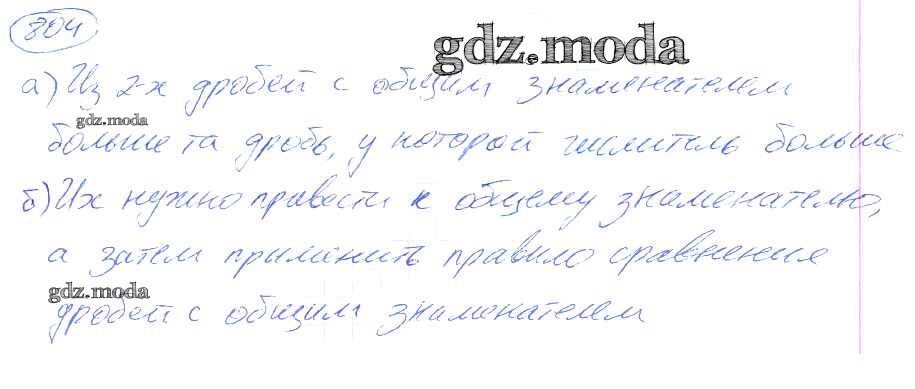 804
gdz.moda
а) Из 2-х дробей с общим знаменателем
gdz.moda
больше та дробь, у которой числитель больше.
б) Их нужно привести к общему знаменателю,
а затем применить правило сравнения
gdz.moda
дробей с общим знаменателем